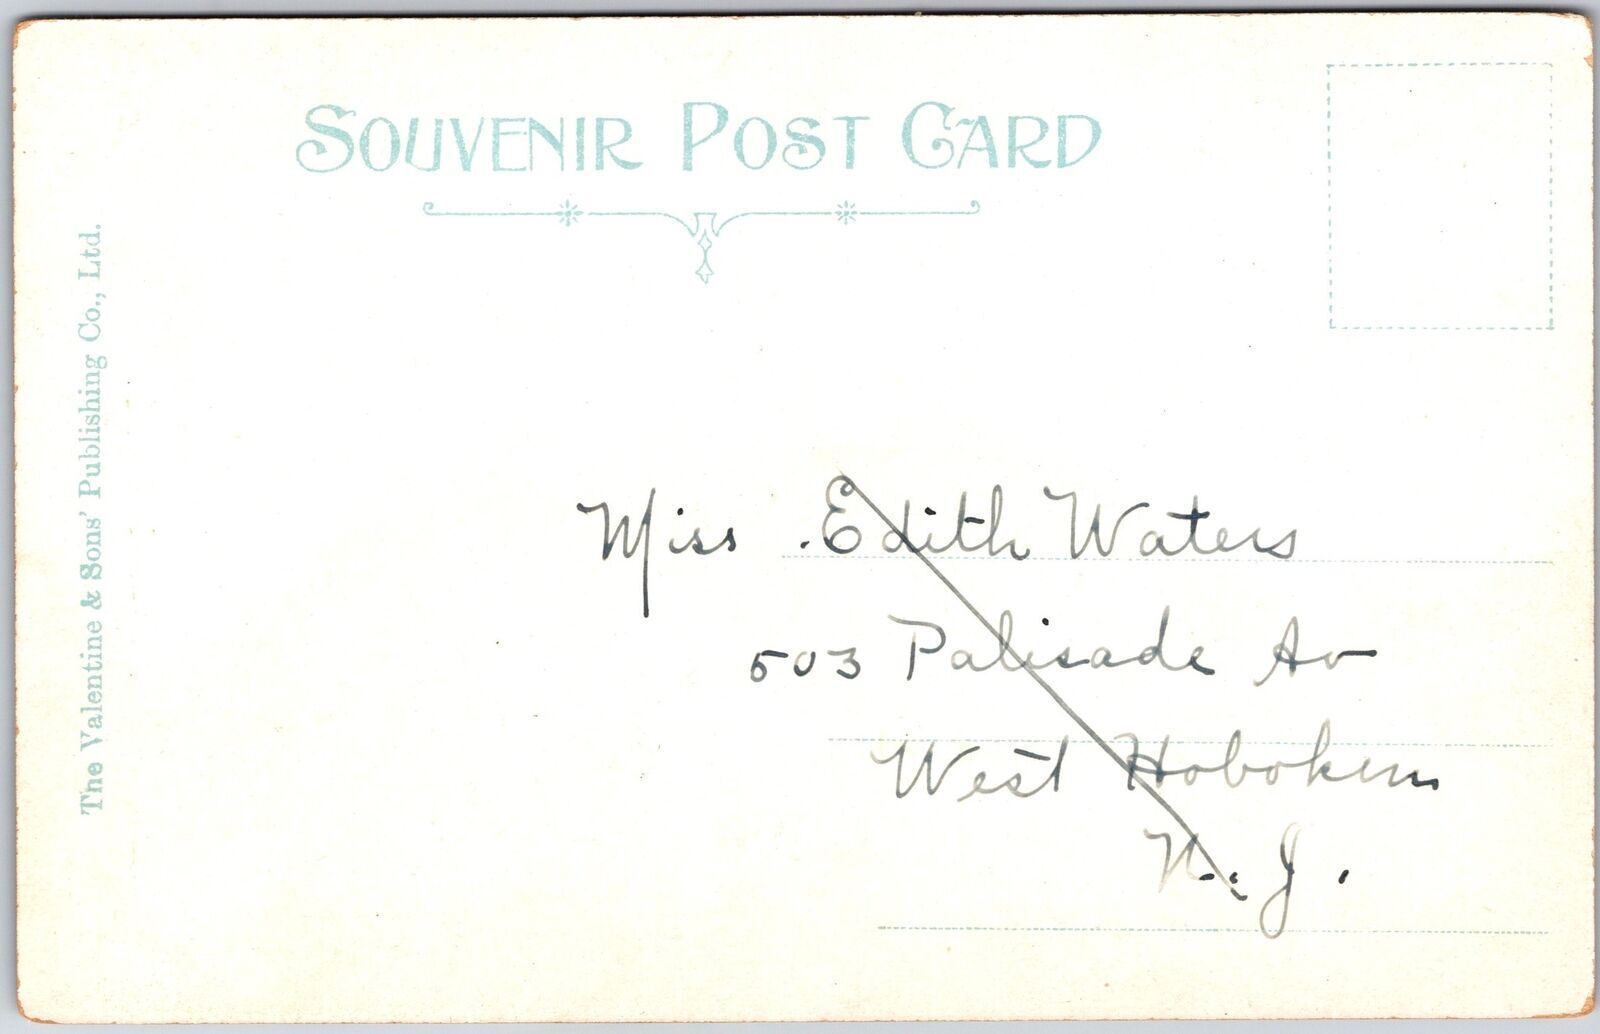 SOUVENIR POST CARD
The Valentine & Sons' Publishing Co., Ltd.
Miss Edith Waters
503 Palisade Av
West Hoboken
N. J.